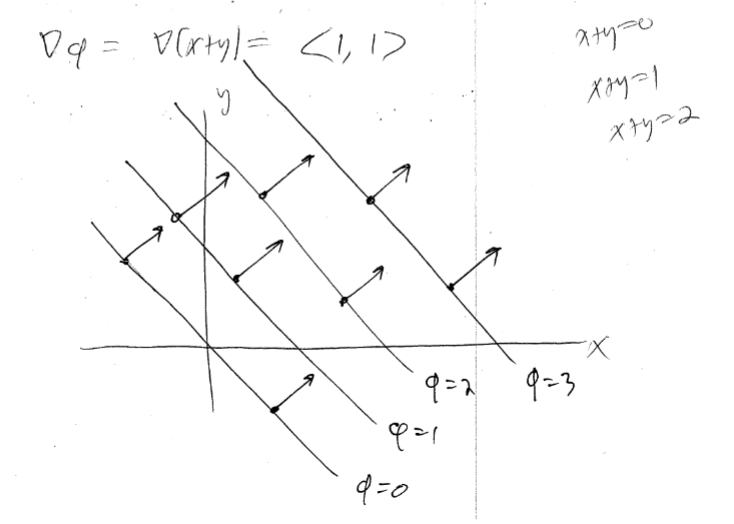 ∇φ = ∇(x+y) = <1, 1>
x+y=0
x+y=1
x+y=2
y
x
φ=2
φ=3
φ=1
φ=0